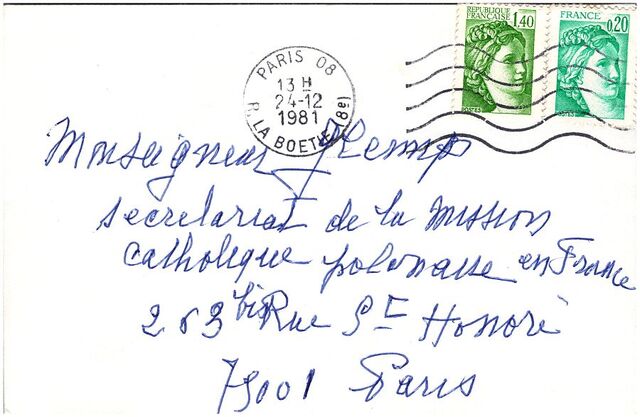 REPUBLIQUE
FRANÇAISE 1,40
POSTES
FRANCE
0,20
POSTES
PARIS 08
13 H
24-12
1981
R. LA BOETIE (8e)
Monseigneur
secretariat de la Mission
catholique polonaise en France
263 bis Rue St Honoré
75001 Paris